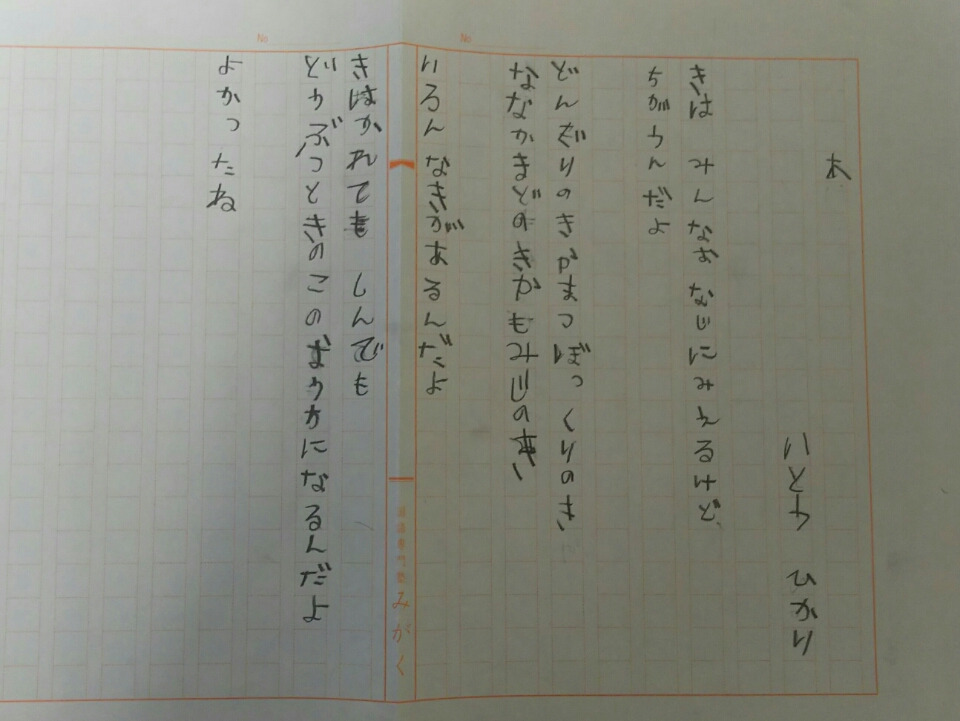 木
いとう ひかり
きは みんなおなじにみえるけど
ちがうんだよ
どんぐりのきやまつぼっくりのき
ななかまどのきやもみじの木
いろんなきがあるんだよ
きはかれても しんでも
どうぶつときのこのおうちになるんだよ
よかったね
No
No
みがく